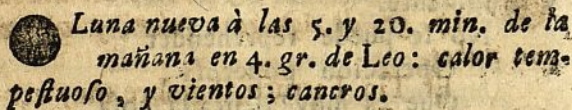 Luna nueva à las 5. y 20. min. de la
mañana en 4. gr. de Leo: calor tem-
peſtuoſo, y vientos; cancros.